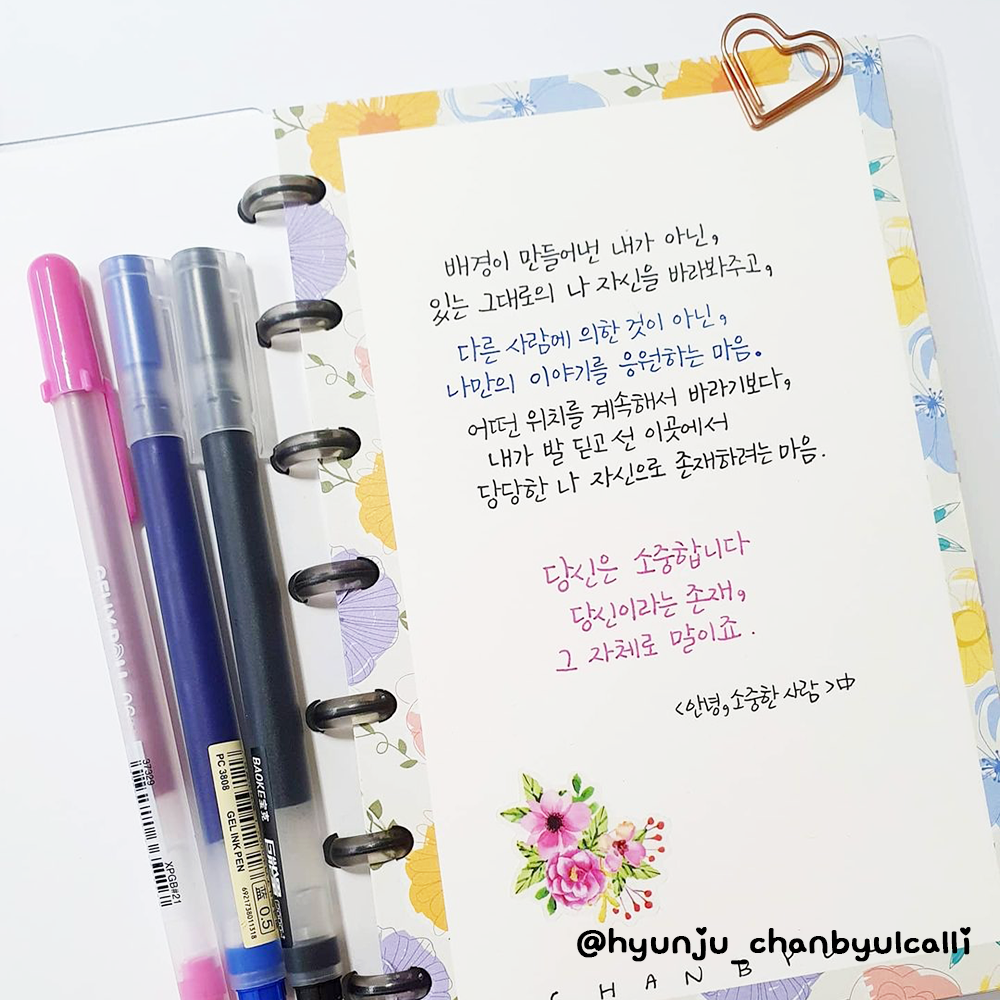 배경이 만들어낸 내가 아닌,
있는 그대로의 나 자신을 바라봐주고,
다른 사람에 의한 것이 아닌,
나만의 이야기를 응원하는 마음.
어떤 위치를 계속해서 바라기보다,
내가 발 딛고 선 이곳에서
당당한 나 자신으로 존재하려는 마음.
당신은 소중합니다
당신이라는 존재,
그 자체로 말이죠.
<안녕, 소중한 사람>中
37329
XPGB#21
PC 3808
GEL INK PEN
蓝 0.5
6921738011518
BAOKE宝克
@hyunju_chanbyulcalli
C H A N B